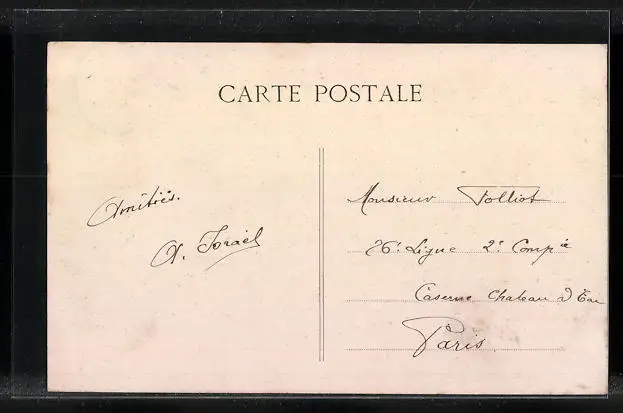 CARTE POSTALE
Amitiés.
A. Israël
Monsieur Folliot
26e Ligne 2e Compie
Caserne Chateau d'Eau
Paris.